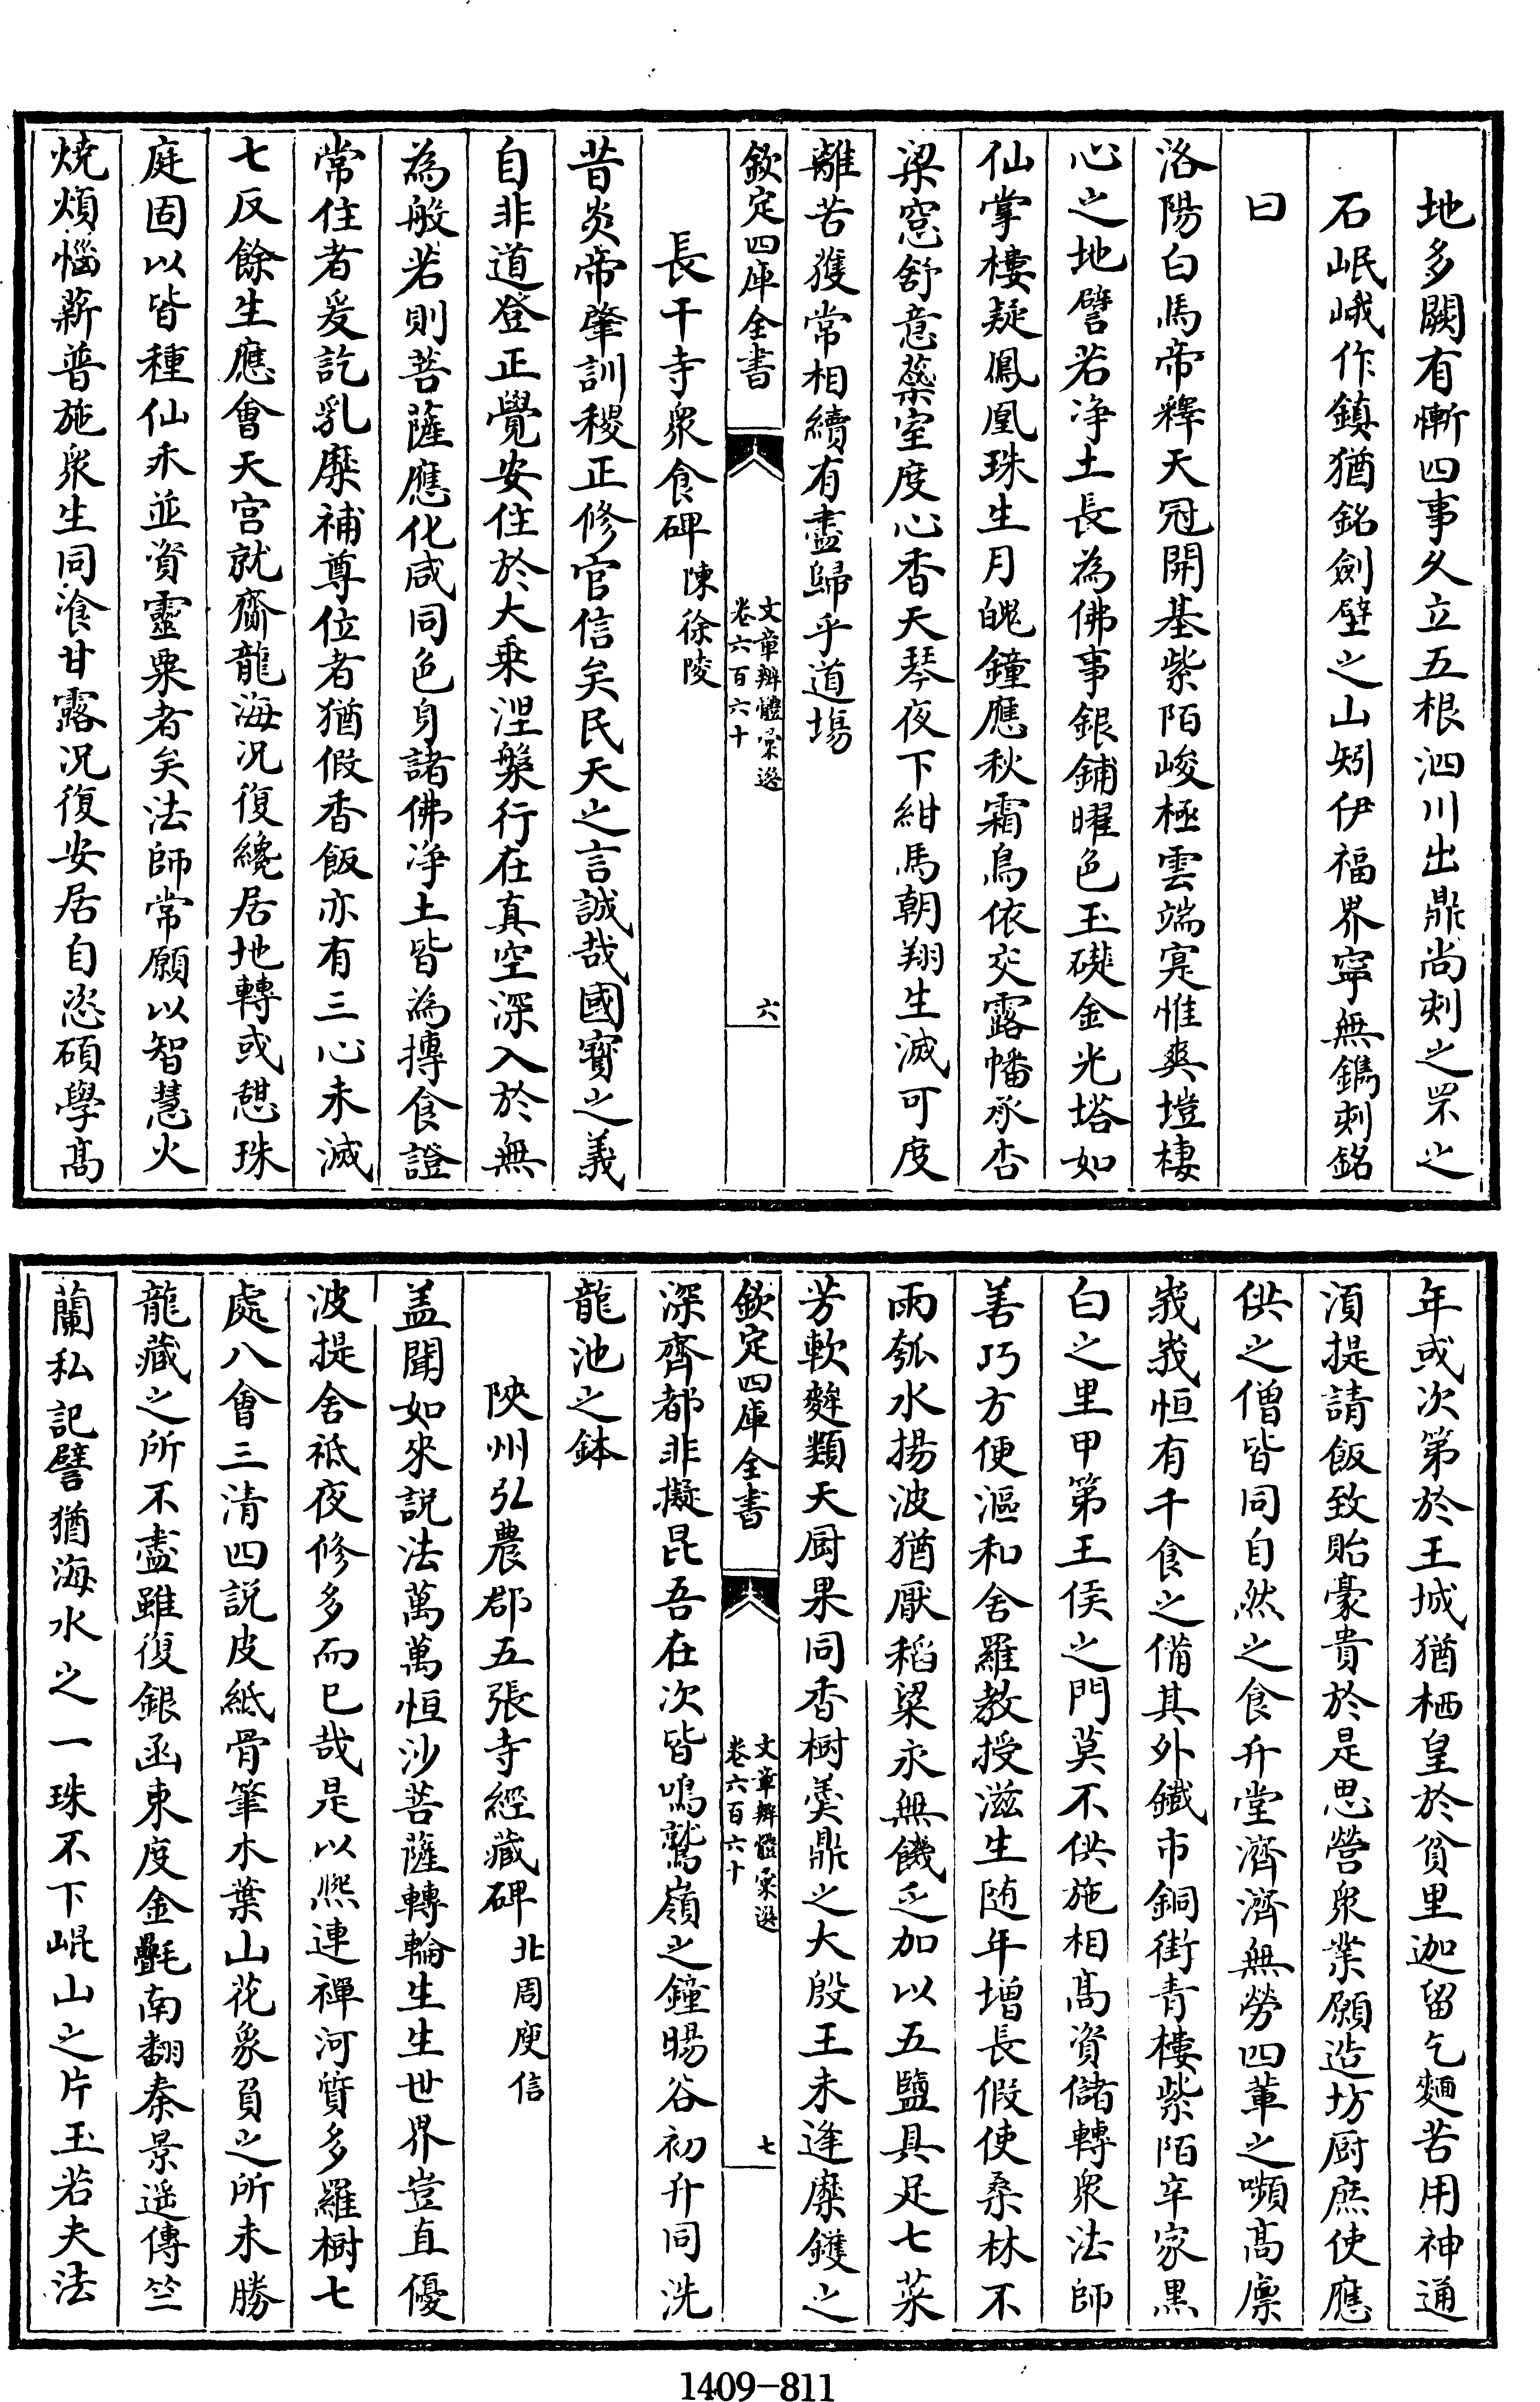 地多闕有慚四事久立五根泗川出鼎尚刻之罘之
石岷峨作鎮猶銘劍壁之山矧伊福界寧無鐫刻銘
曰
洛陽白馬帝釋天冠開基紫陌峻極雲端寔惟爽塏棲
心之地譬若净土長為佛事銀鋪曜色玉礎金光塔如
仙掌樓疑鳳凰珠生月魄鐘應秋霜鳥依交露幡承杏
梁窓舒意蘂室度心香天琴夜下紺馬朝翔生滅可度
離苦獲常相續有盡歸乎道塲
欽定四庫全書
文章辨體彚選
卷六百六十
六
長干寺衆食碑 陳徐陵
昔炎帝肇訓稷正修官信矣民天之言誠哉國寳之義
自非道登正覺安住於大乗涅槃行在真空深入於無
為般若則菩薩應化咸同色身諸佛净土皆為摶食證
常住者爰訖乳糜補尊位者猶假香飯亦有三心未滅
七反餘生應會天宫就齋龍海况復纔居地轉或憇珠
庭固以皆種仙禾並資靈粟者矣法師常願以智慧火
焼煩惱薪普施衆生同飡甘露况復安居自恣碩學高
年或次第於王城猶栖皇於貧里迦留乞麵苦用神通
湏提請飯致貽豪貴於是思營衆業願造坊厨庶使應
供之僧皆同自然之食升堂濟濟無勞四輩之嚬高廪
峩峩恒有千食之備其外鐵市銅街青樓紫陌辛家黒
白之里甲第王侯之門莫不供施相高資儲轉衆法師
善巧方便漚和舍羅教授滋生随年增長假使桑林不
雨瓠水揚波猶厭稻粱永無饑乏加以五鹽具足七菜
芳軟麰類天厨果同香樹羮鼎之大殷王未逢糜鑊之
欽定四庫全書
文章辨體彚選
卷六百六十
七
深齊都非擬昆吾在次皆鳴鷲嶺之鐘暘谷初升同洗
龍池之鉢
陜州弘農郡五張寺經藏碑 北周庾信
盖聞如來説法萬萬恒沙菩薩轉輪生生世界豈直優
波提舍祇夜修多而已哉是以熈連禪河質多羅樹七
處八會三清四説皮紙骨筆木葉山花象負之所未勝
龍藏之所不盡雖復銀函東度金㲲南翻秦景遥傳竺
蘭私記譬猶海水之一珠不下崐山之片玉若夫法
1409-811